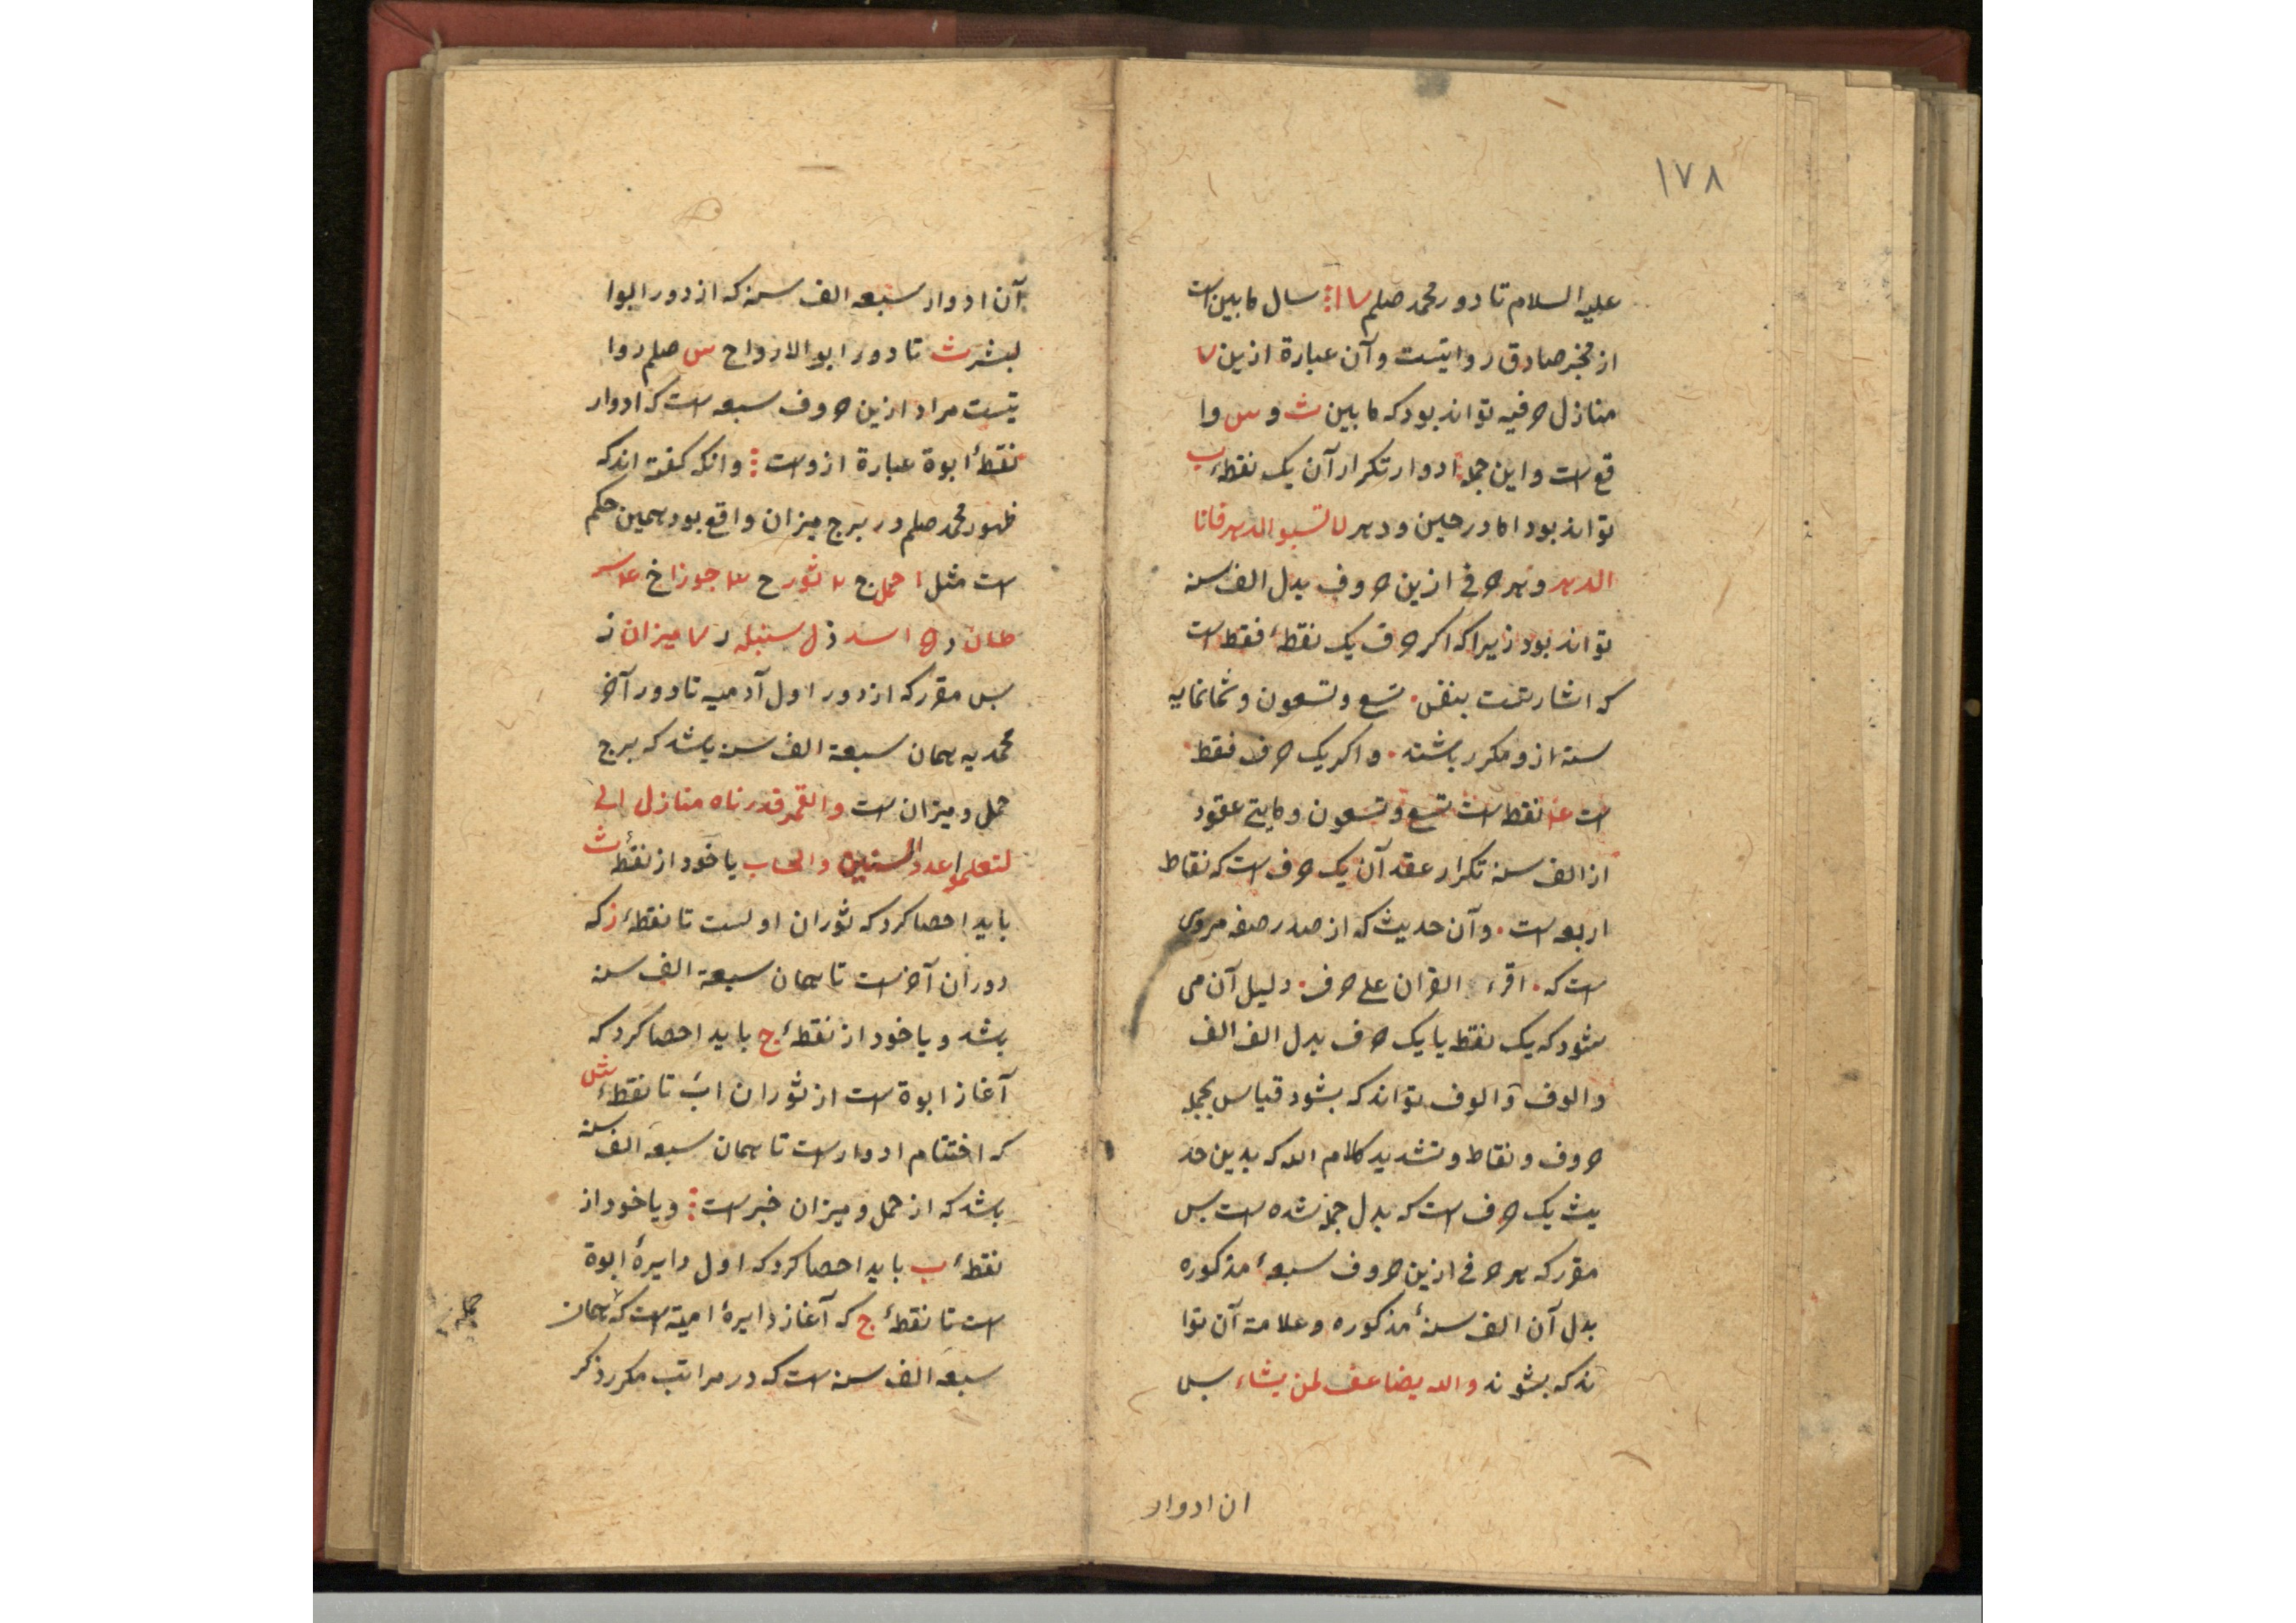 ١٧٨
علیه السلام تا دور محمد صلم ٧١ سال مابین است
از مخبر صادق روایتست و آن عبارة ازین ٧
منازل حرفیه تواند بود که مابین ث و س وا
قع است و این جمله ادوار تکرار آن یک نقطهٔ ب
تواند بود اما در حین و دهر لا تسبوا الدهر فانا
الدهر و هر حرفی ازین حروف بدل الف سنه
تواند بود زیرا که اکر حرف یک نقطهٔ فقط است
که اشارتست بنفس تسع و تسعون و ثمانمایه
سنه ازو مکرر باشند و اکر یک حرف فقط
است نقط است تسع و تسعون و مایتی عقود
از الف سنه تکرار عقد آن یک حرف است که نقاط
اربعه است و آن حدیث که از صدر صفه مروی
است که اقرء القران علی حرف دلیل آن می
شود که یک نقط یا یک حرف بدل الف الف
والوف و الوف تواند که بشود قیاس بجمله
حروف و نقاط و تشدید کلام الله که بدین حد
یث یک حرف است که بدل جمله شده است بس
مقرر که هر حرفی ازین حروف سبعهٔ مذکوره
بدل آن الف سنهٔ مذکوره و علامة آن توا
ند که بشوند والله یضاعف لمن یشاء بس
ان ادوار
آن ادوار سبعه الف سنه که از دور ابوا
لبشر ث تا دور ابو الارواح س صلم روا
یتست مراد ازین حروف سبعه است که ادوار
نقطهٔ ابوة عبارة ازوست وانکه کفته اند که
ظهور محمد صلم در برج میزان واقع بود همین حکم
است مثل ا حمل ج ٢ ثور ح ٣ جوزا خ ٤ سر
طان د ٥ اسد ذ ٦ سنبله ر ٧ میزان ز
بس مقرر که از دور اول آدمیه تا دور آخر
محمدیه همان سبعة الف سنه باشد که برج
حمل و میزان است والقمر قدرناه منازل الی
لتعلموا عدد السنین والحساب یا خود از نقطهٔ ث
باید احصا کرد که ثوران اولست تا نقطهٔ ز که
دوران آخر است تا همان سبعة الف سنه
باشد و یا خود از نقطهٔ ج باید احصا کرد که
آغاز ابوة است از ثوران اب تا نقطهٔ ش
که اختتام ادوار است تا همان سبعه الف سنه
باشد که از حمل و میزان خبر است و یا خود از
نقطهٔ ب باید احصا کرد که اول دایرهٔ ابوة
است تا نقطهٔ ج که آغاز دایرهٔ امیة است که همان
جمله
سبعه الف سنه است که در مراتب مکرر ذکر